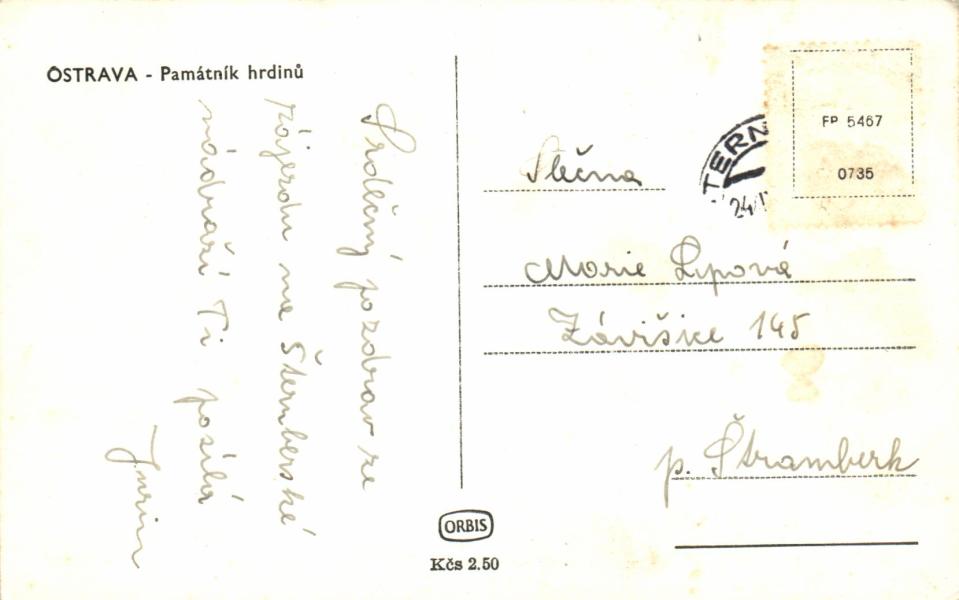 OSTRAVA - Památník hrdinů
Srdečný pozdrav ze
zájezdu na Šternberské
nádraží Ti posílá
FP 5467
0735
TERN
24
Slečna
Marie Lipová
Závišice 145
p. Štramberk
ORBIS
Kčs 2.50